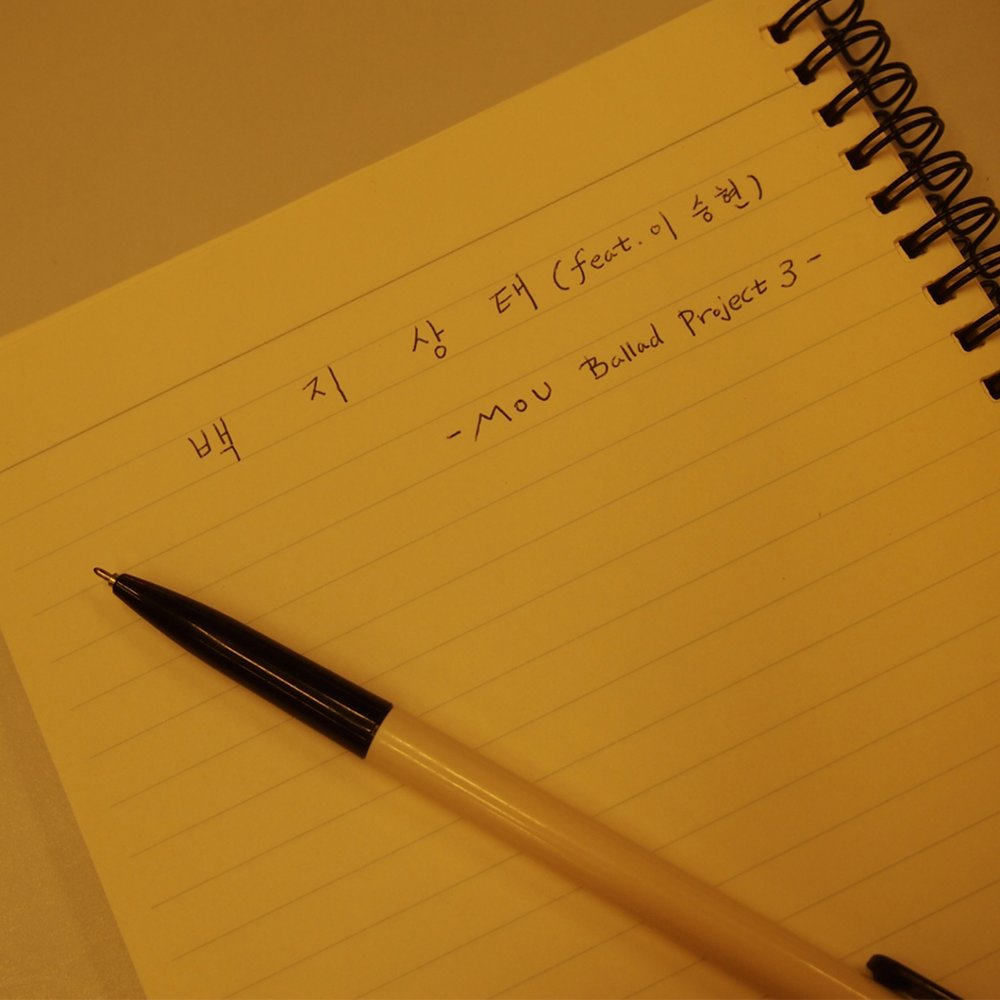 백 지 상 태 (feat. 이 승현)
- MoU Ballad Project 3 -